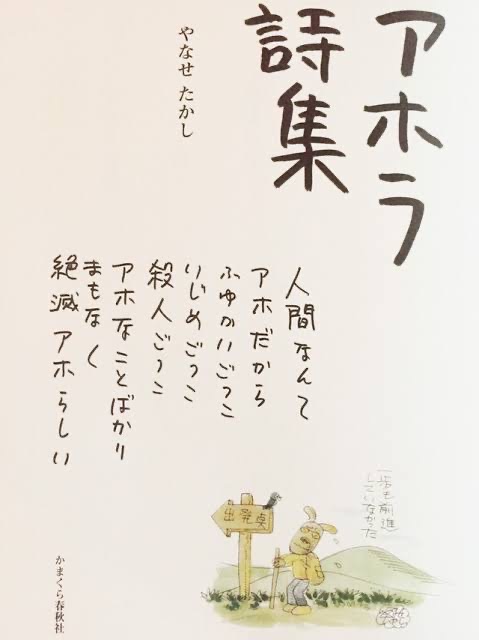 アホラ
詩集
やなせ たかし
人間なんて
アホだから
ふゆかいごっこ
いじめごっこ
殺人ごっこ
アホなことばかり
まもなく
絶滅 アホらしい
一歩も前進
していなかった
出発点
かまくら春秋社